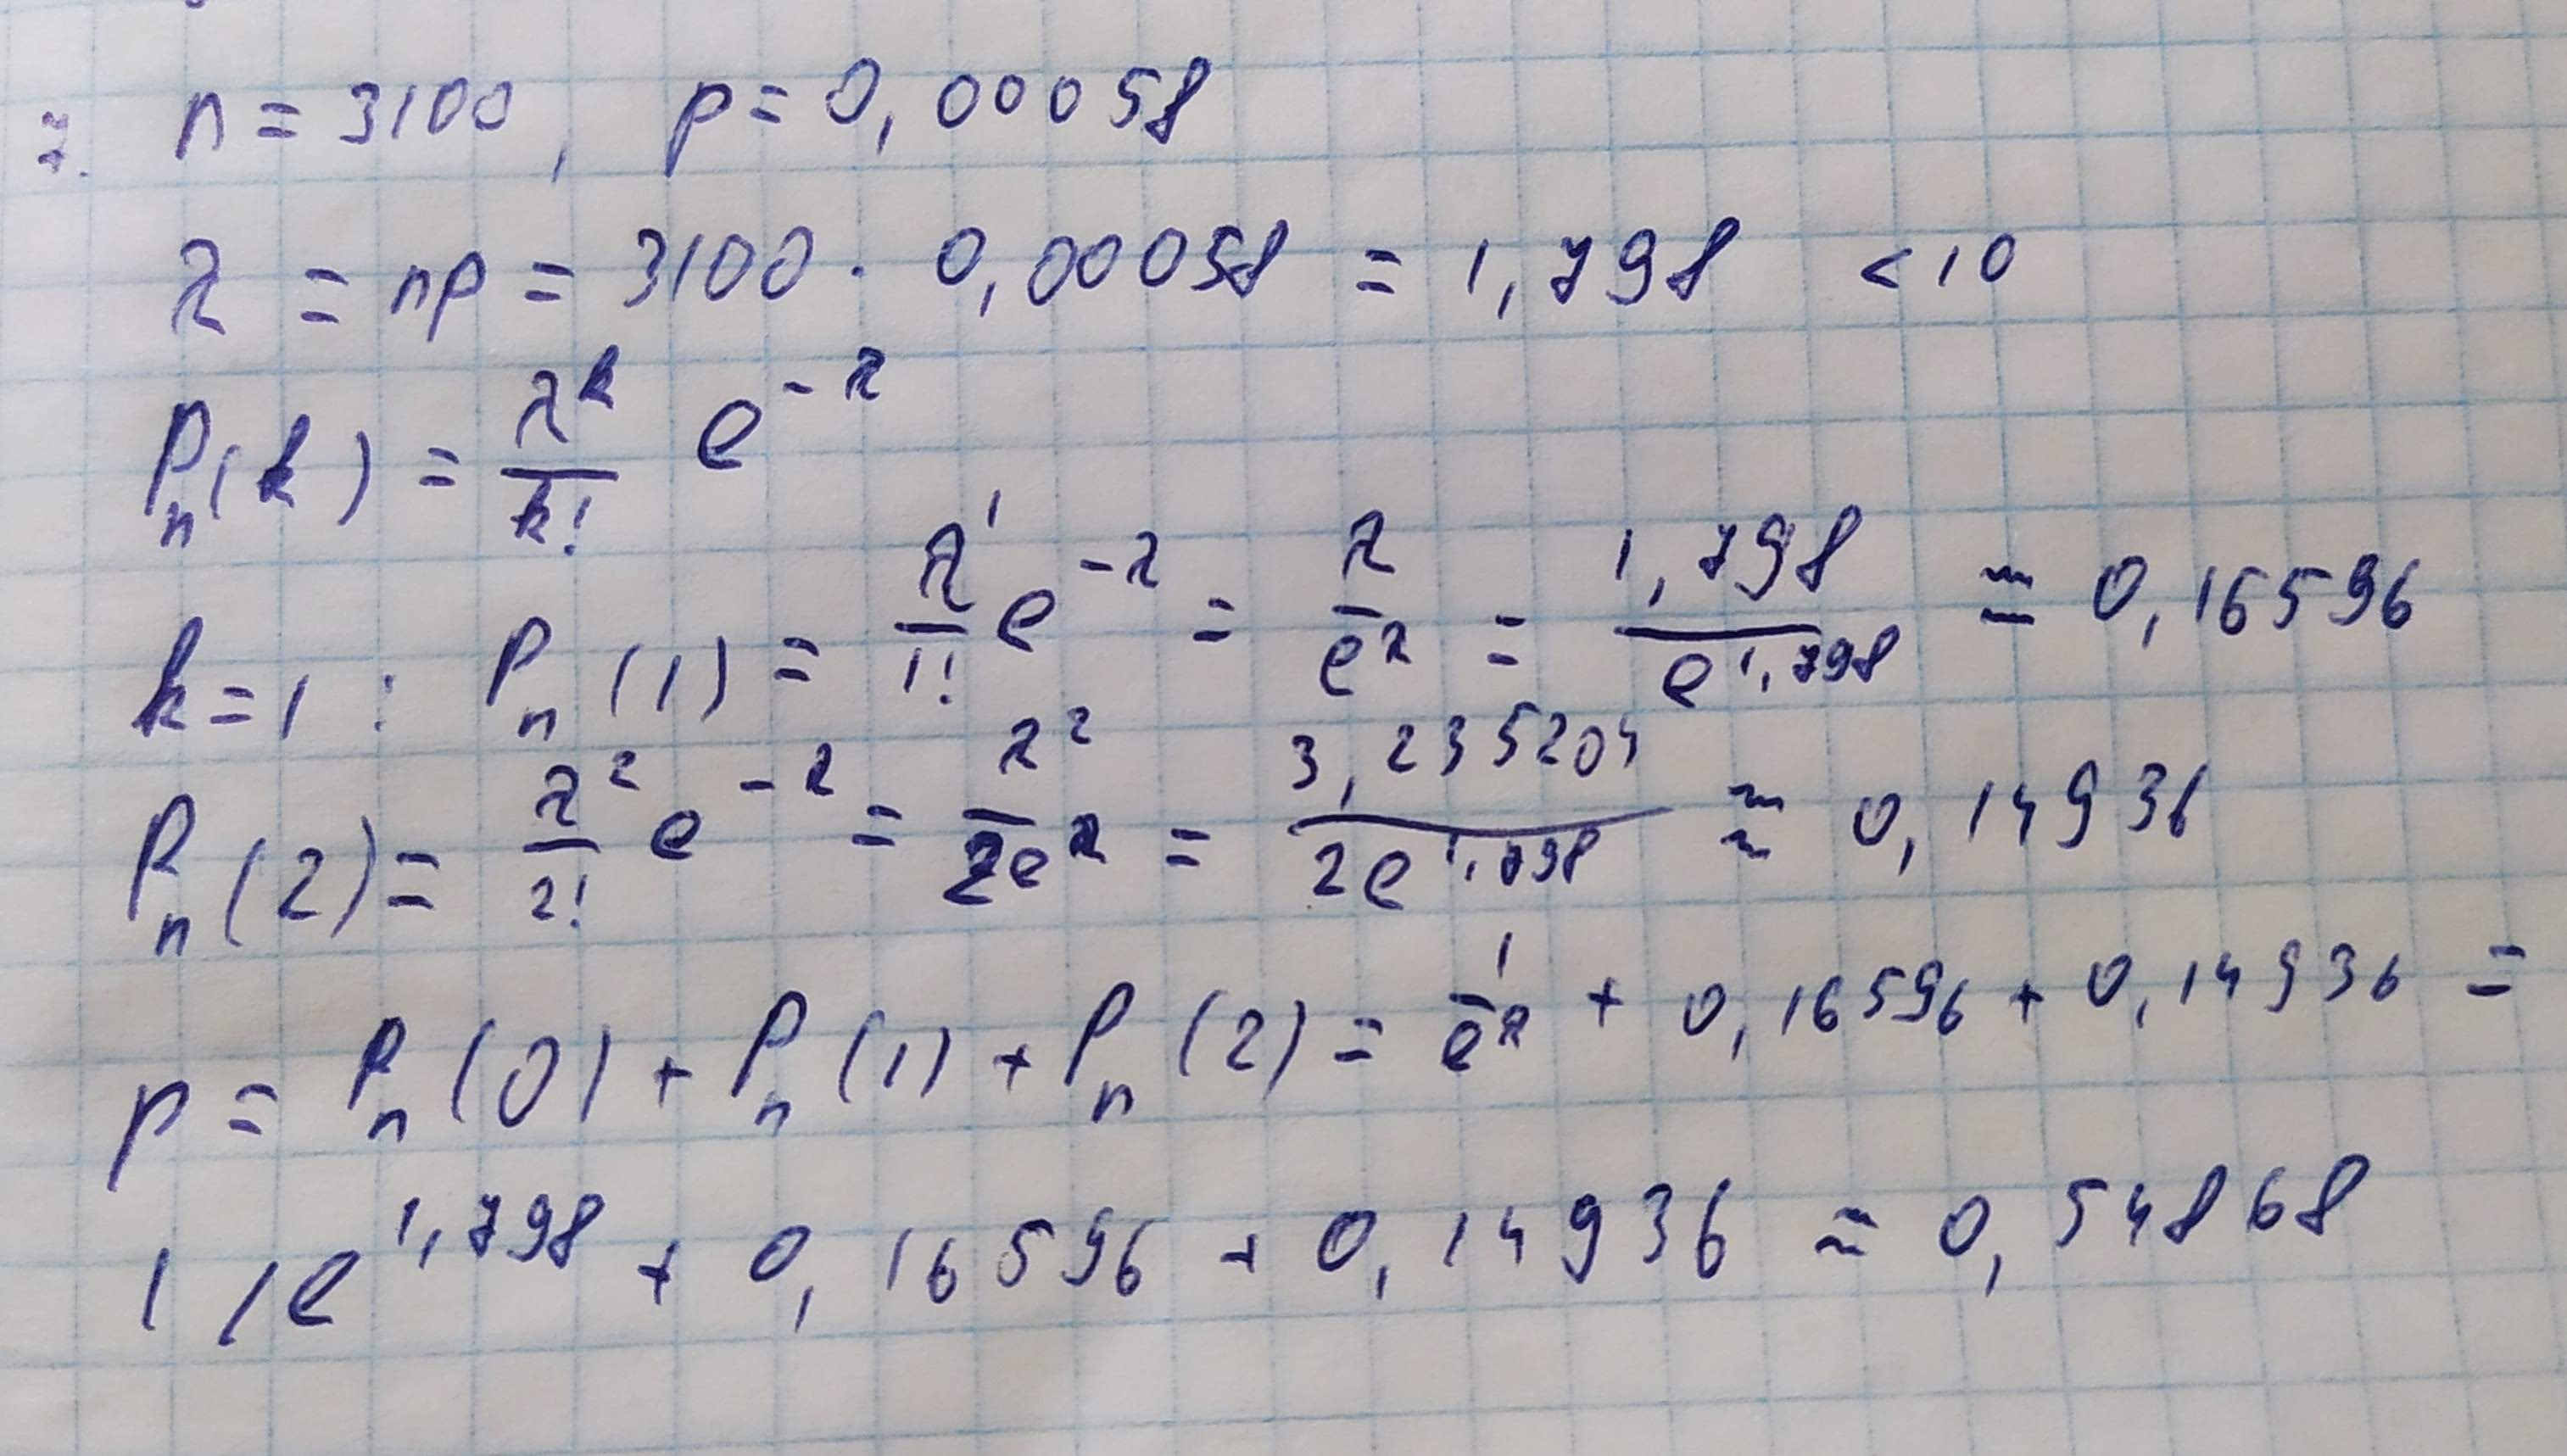 7. n = 3100, p = 0,00058
λ = np = 3100 · 0,00058 = 1,798 < 10
Pₙ(k) = λᵏ/k! e^(-λ)
k = 1 : Pₙ(1) = λ¹/1! e^(-λ) = λ/e^λ = 1,798/e^(1,798) ≈ 0,16596
Pₙ(2) = λ²/2! e^(-λ) = λ²/2e^λ = 3,235204/2e^(1,798) ≈ 0,14936
p = Pₙ(0) + Pₙ(1) + Pₙ(2) = 1/e^λ + 0,16596 + 0,14936 =
1/e^(1,798) + 0,16596 + 0,14936 ≈ 0,54868